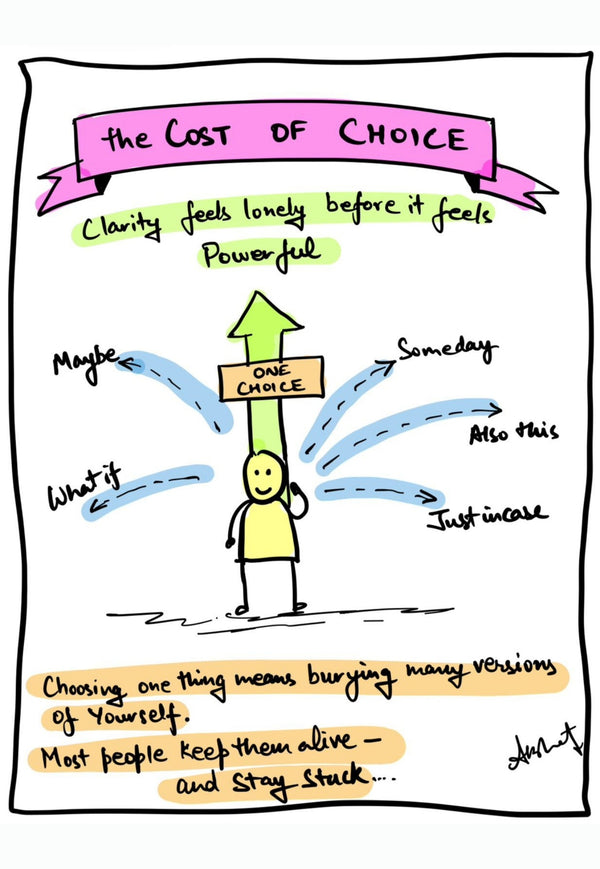 the COST OF CHOICE
Clarity feels lonely before it feels
Powerful
Maybe
Someday
ONE
CHOICE
Also this
What if
Just incase
Choosing one thing means burying many versions
of Yourself.
Most people keep them alive –
and Stay Stuck....